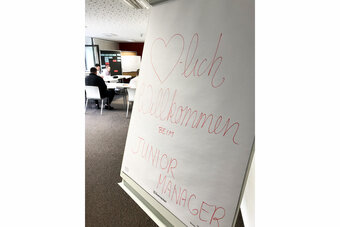 ♡-lich
Willkommen
BEIM
JUNIOR
MANAGER